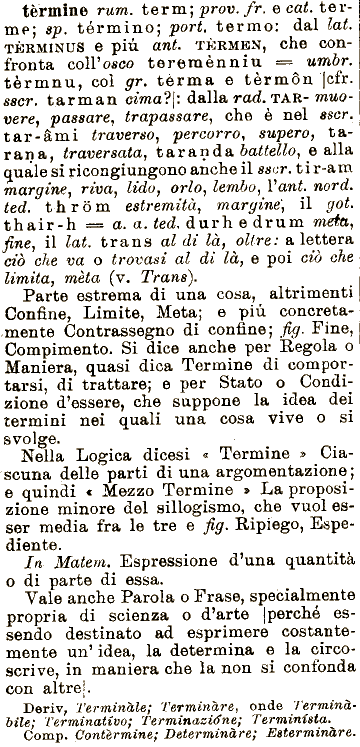 tèrmine rum. term; prov. fr. e cat. ter-
me; sp. término; port. termo: dal lat.
TÈRMINUS e più ant. TÈRMEN, che con-
fronta coll'osco teremènniu = umbr.
tèrmnu, col gr. tèrma e tèrmôn |cfr.
sscr. tarman cima?|: dalla rad. TAR- muo-
vere, passare, trapassare, che è nel sscr.
tar-âmi traverso, percorro, supero, ta-
raṇa, traversata, taraṇda battello, e alla
quale si ricongiungono anche il sscr. tir-am
margine, riva, lido, orlo, lembo, l'ant. nord.
ted. thröm estremità, margine, il got.
thair-h = a. a. ted. durh e drum meta,
fine, il lat. trans al di là, oltre: a lettera
ciò che va o trovasi al di là, e poi ciò che
limita, mèta (v. Trans).
Parte estrema di una cosa, altrimenti
Confine, Limite, Meta; e più concreta-
mente Contrassegno di confine; fig. Fine,
Compimento. Si dice anche per Regola o
Maniera, quasi dica Termine di compor-
tarsi, di trattare; e per Stato o Condi-
zione d'essere, che suppone la idea dei
termini nei quali una cosa vive o si
svolge.
Nella Logica dicesi « Termine » Cia-
scuna delle parti di una argomentazione;
e quindi « Mezzo Termine » La proposi-
zione minore del sillogismo, che vuol es-
ser media fra le tre e fig. Ripiego, Espe-
diente.
In Matem. Espressione d'una quantità
o di parte di essa.
Vale anche Parola o Frase, specialmente
propria di scienza o d'arte |perché es-
sendo destinato ad esprimere costante-
mente un' idea, la determina e la circo-
scrive, in maniera che la non si confonda
con altre|.
Deriv, Terminàle; Terminàre, onde Terminà-
bile; Terminatívo; Terminazióne; Terminísta.
Comp. Contèrmine; Determinàre; Esterminàre.